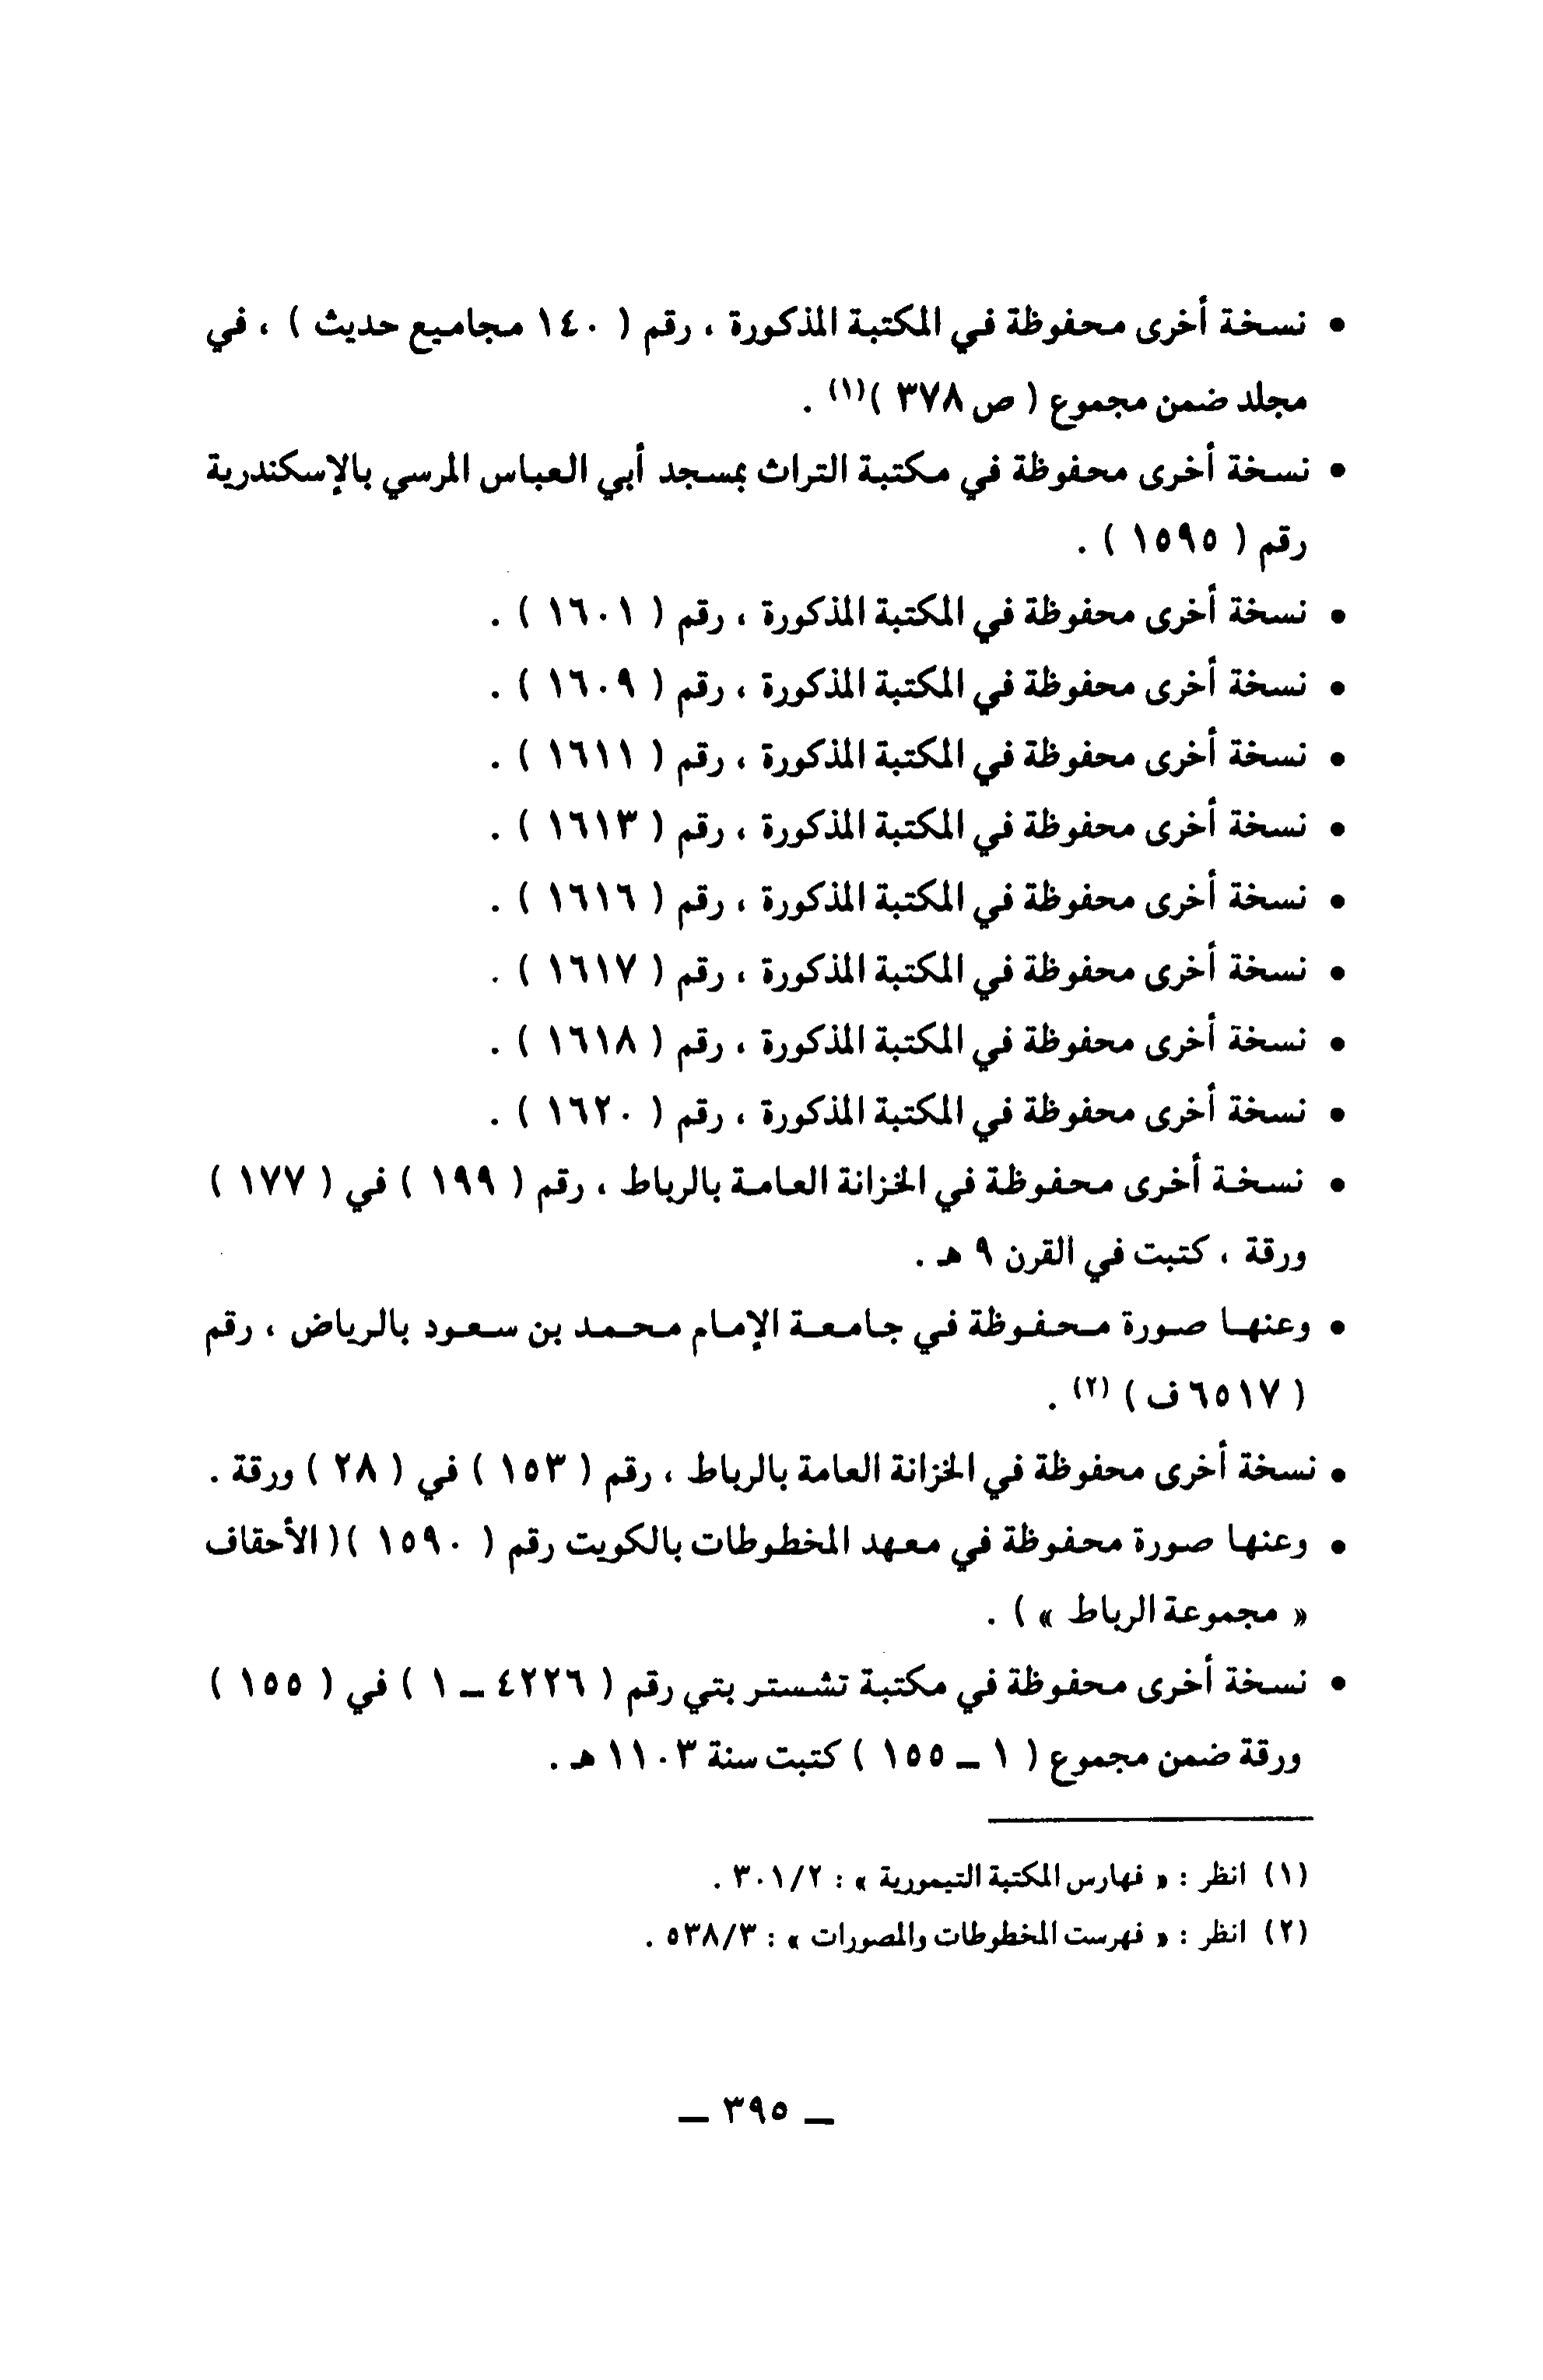 • نسخة أخرى محفوظة في المكتبة المذكورة ، رقم ( ١٤٠ مجاميع حديث ) ، في
مجلد ضمن مجموع ( ص ٣٧٨ )(١) .
• نسخة أخرى محفوظة في مكتبة التراث بمسجد أبي العباس المرسي بالإسكندرية
رقم ( ١٥٩٥ ) .
• نسخة أخرى محفوظة في المكتبة المذكورة ، رقم ( ١٦٠١ ) .
• نسخة أخرى محفوظة في المكتبة المذكورة ، رقم ( ١٦٠٩ ) .
• نسخة أخرى محفوظة في المكتبة المذكورة ، رقم ( ١٦١١ ) .
• نسخة أخرى محفوظة في المكتبة المذكورة ، رقم ( ١٦١٣ ) .
• نسخة أخرى محفوظة في المكتبة المذكورة ، رقم ( ١٦١٦ ) .
• نسخة أخرى محفوظة في المكتبة المذكورة ، رقم ( ١٦١٧ ) .
• نسخة أخرى محفوظة في المكتبة المذكورة ، رقم ( ١٦١٨ ) .
• نسخة أخرى محفوظة في المكتبة المذكورة ، رقم ( ١٦٢٠ ) .
• نسخة أخرى محفوظة في الخزانة العامة بالرباط ، رقم ( ١٩٩ ) في ( ١٧٧ )
ورقة ، كتبت في القرن ٩ هـ .
• وعنها صورة محفوظة في جامعة الإمام محمد بن سعود بالرياض ، رقم
( ٦٥١٧ ف ) (٢) .
• نسخة أخرى محفوظة في الخزانة العامة بالرباط ، رقم ( ١٥٣ ) في ( ٢٨ ) ورقة .
• وعنها صورة محفوظة في معهد المخطوطات بالكويت رقم ( ١٥٩٠ )( الأحقاف
« مجموعة الرباط » ) .
• نسخة أخرى محفوظة في مكتبة تشستر بتي رقم ( ٤٢٢٦ – ١ ) في ( ١٥٥ )
ورقة ضمن مجموع ( ١ – ١٥٥ ) كتبت سنة ١١٠٣ هـ .
(١) انظر : « فهارس المكتبة التيمورية » : ٣٠١/٢ .
(٢) انظر : « فهرست المخطوطات والمصورات » : ٥٣٨/٣ .
– ٣٩٥ –